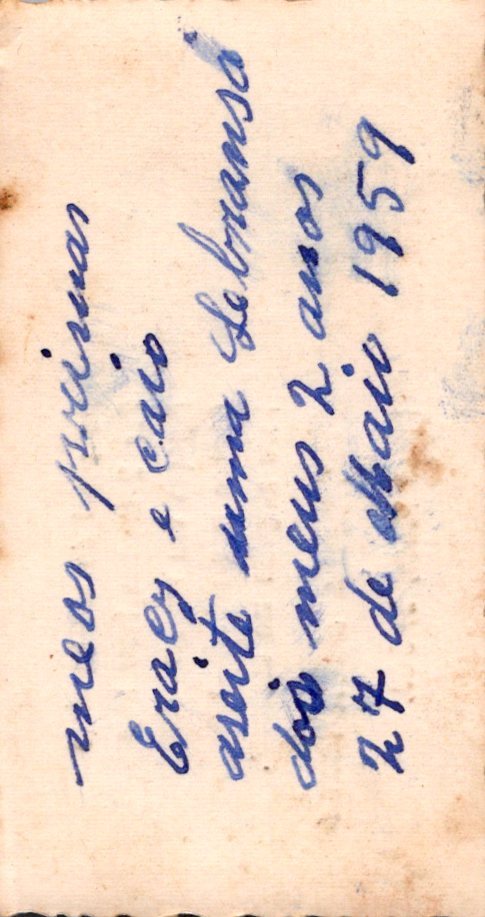 meos primas
Eracy e caio
aseite uma Lebransa
dos meus 2 anos
27 de Maio 1959